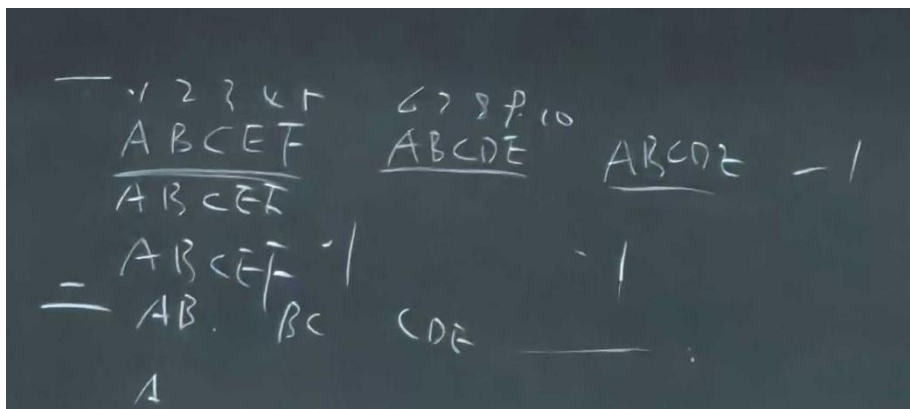 一、1 2 3 4 5 6 7 8 9 10
ABCEF ABCDE ABCDE -1
ABCEF
ABCEF -1 -1
二 AB. BC CDE
A